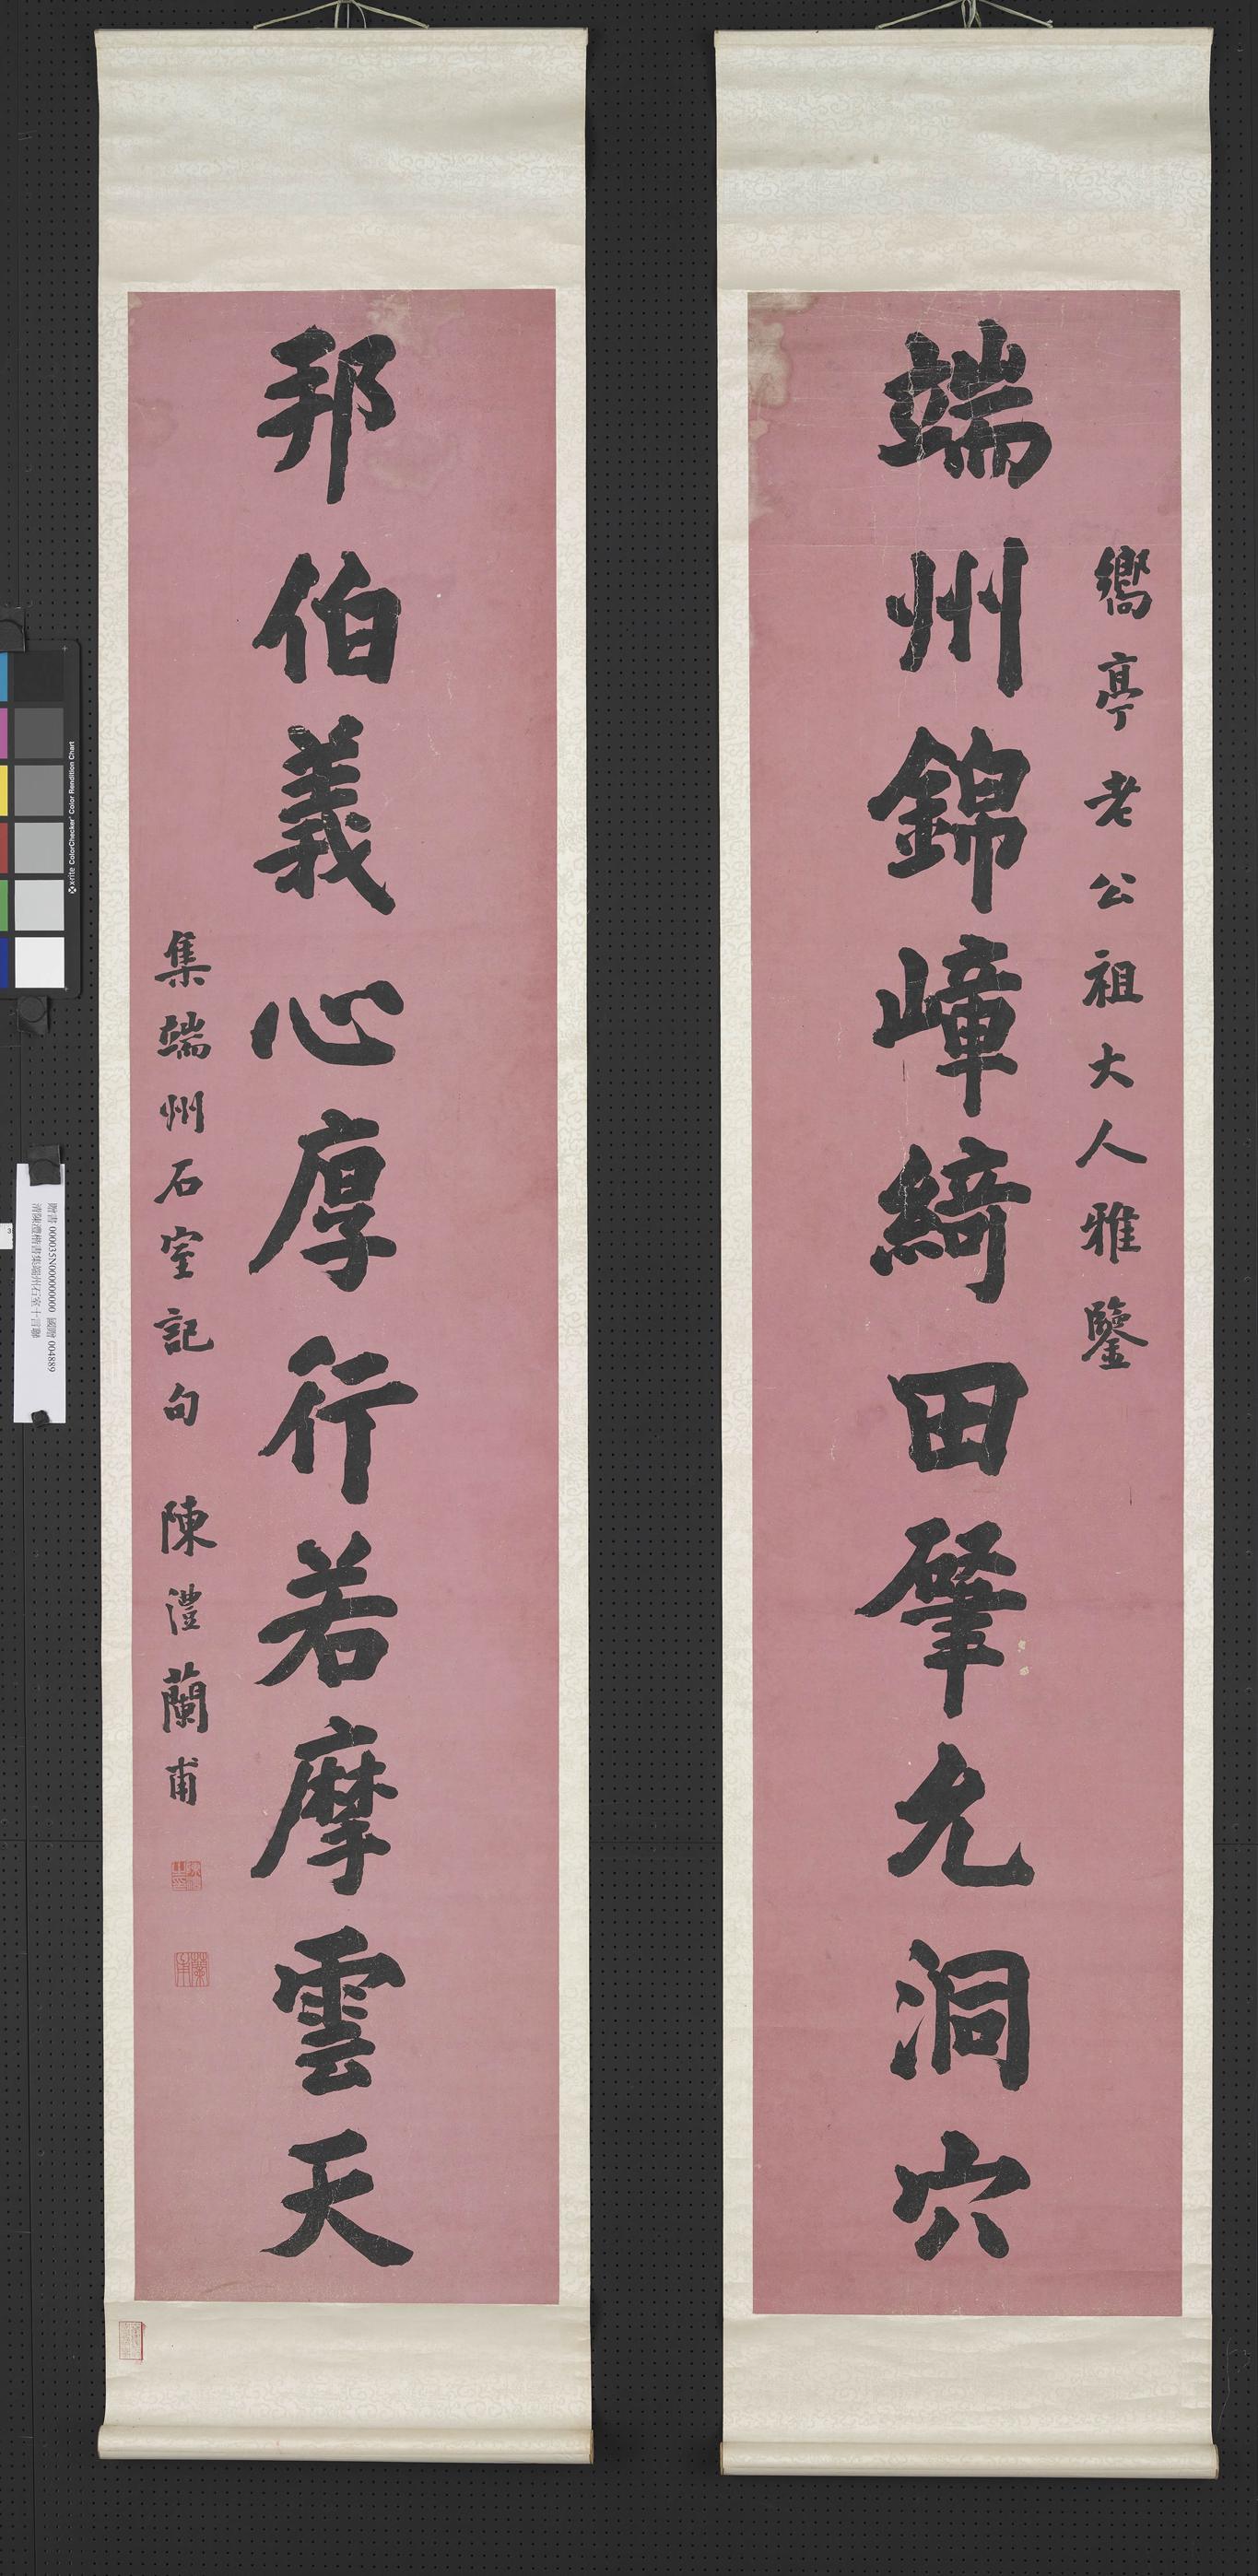 端州錦嶂綺田肈允洞穴
嚮亭老公祖大人雅鑒
邦伯義心厚行若摩雲天
集端州石室記句 陳澧蘭甫
蘭甫
贈書 000035N000000000 國贈 004889
清陳澧楷書集端州石室十言聯
x-rite ColorChecker Color Rendition Chart